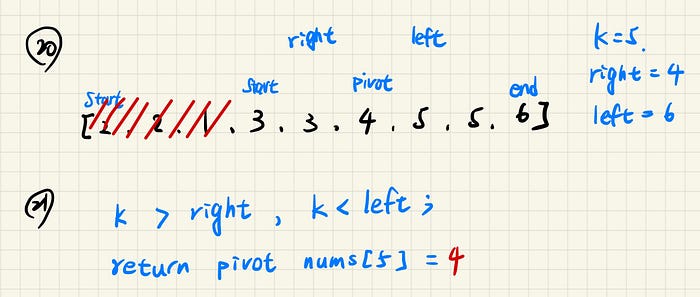 20
right left k=5.
start start pivot end right = 4
[2.2.1.3.3.4.5.5.6] left = 6
21
k > right , k < left ;
return pivot nums[5] = 4